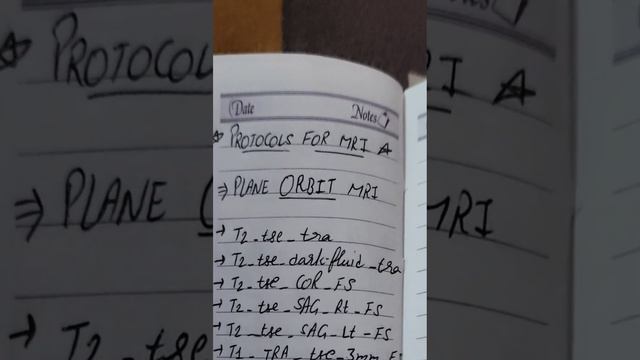 Date Notes
☆ PROTOCOLS FOR MRI ☆
⇒ PLANE ORBIT MRI
→ T2_tse_tra
→ T2_tse_dark-fluid_tra
→ T2_tse_COR_FS
→ T2_tse_SAG_Rt_FS
→ T2_tse_SAG_Lt_FS
→ T1_TRA_tse_3mm_F